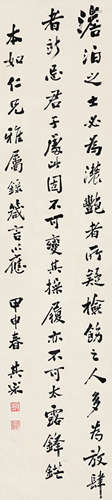 澹泊之士必為濃豔者所疑檢飭之人多為放肆
者所忌君子處此固不可變其操履亦不可太露鋒鋩
本如仁兄雅屬錄箴言以應 甲申春 其采